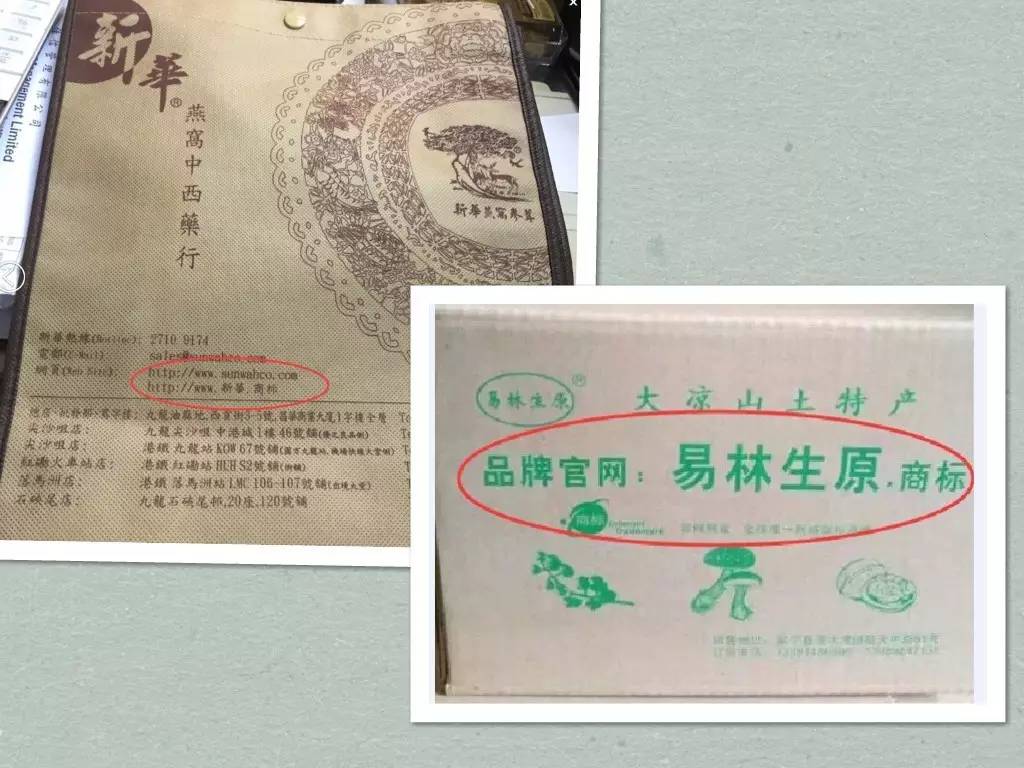 管理有限公司
Management Limited
新華®
燕窩中西藥行
新華燕窩參茸
新華熱線(Hotline): 2710 9174
電郵(E-Mail): sales@sunwahco.com
網頁(Web Site): http://www.sunwahco.com
http://www.新華.商标
尖沙咀店: 九龍尖沙咀中港城1樓46號鋪
尖沙咀店: 港鐵九龍站KOW 67號鋪
紅磡火車站店: 港鐵紅磡站HUH S2號鋪
落馬洲店: 港鐵落馬洲站LMC 106-107號鋪
石硤尾店: 九龍石硤尾邨,20座,120號鋪
易林生原®
大凉山土特产
品牌官网：易林生原.商标
商标